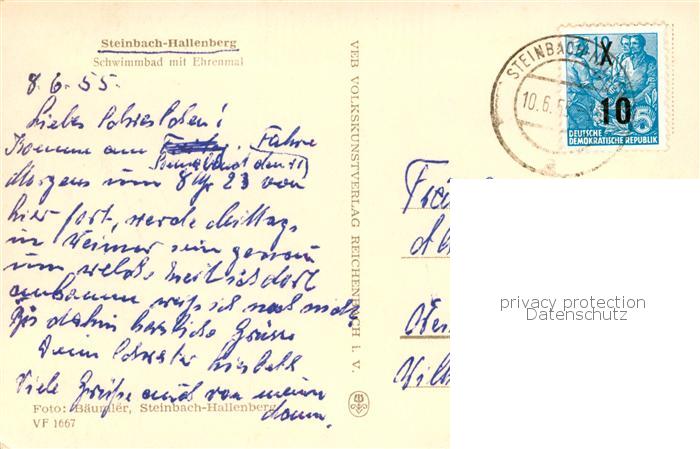 Steinbach-Hallenberg
Schwimmbad mit Ehrenmal
8.6.55.
Liebes Schwesterchen!
Komme am Fahre
Sonnabend den 11
Morgens um 8 Uhr 23 von
hier fort, werde Mittags
in Weimar sein genau
um welche Zeit ich dort
ankomme weiß ich noch nicht
Bis dahin herzliche Grüsse
Deine Schwester
Viele Grüße auch von meinen
Foto: Bäumler, Steinbach-Hallenberg
VF 1667
VEB VOLKSKUNSTVERLAG REICHENBACH i. V.
STEINBACH
10.6.5
X
10
DEUTSCHE
DEMOKRATISCHE REPUBLIK
privacy protection
Datenschutz